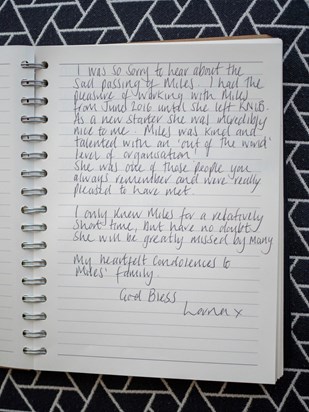 I was so sorry to hear about the
sad passing of Miles. I had the
pleasure of working with Miles
from June 2016 until she left KNIB.
As a new starter she was incredibly
nice to me. Miles was kind and
talented with an 'out of this world'
level of organisation!
She was one of those people you
always remember and were really
pleased to have met.
I only knew Miles for a relatively
short time, But have no doubt
she will be greatly missed by Many
My heartfelt Condolences to
Miles' family.
God Bless
Lorna x